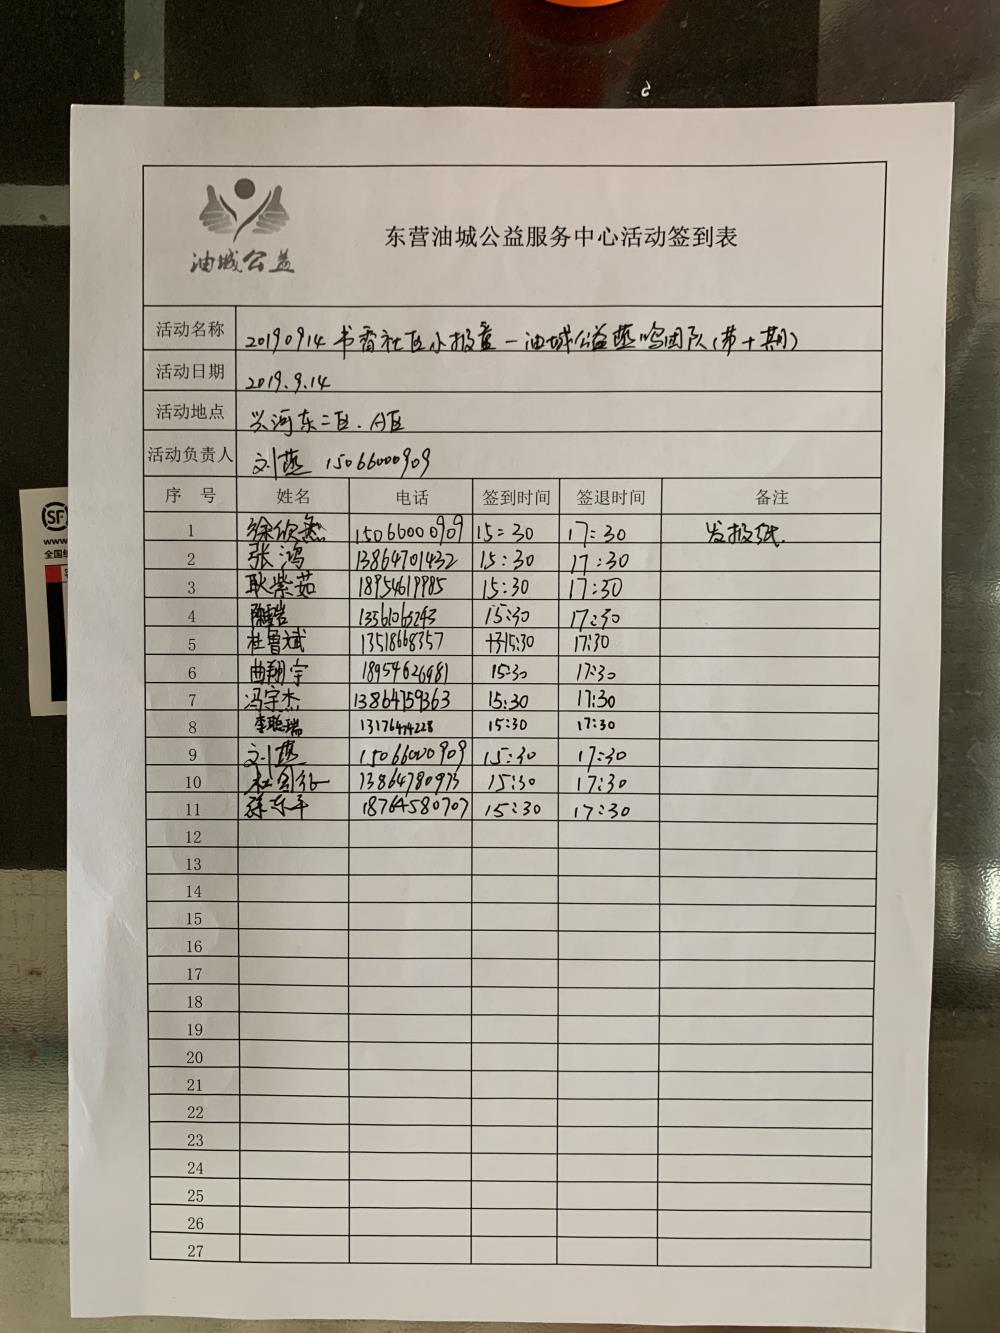 油城公益
东营油城公益服务中心活动签到表
活动名称 20190914书香社区小报童—油城公益燕鸣团队(第十期)
活动日期 2019.9.14
活动地点 兴河东二区.A区
活动负责人 刘燕 15066000909
序 号 姓名 电话 签到时间 签退时间 备注
1 徐欣然 15066000909 15:30 17:30 发报纸.
2 张鸿 13864701432 15:30 17:30
3 耿紫茹 18954619985 15:30 17:30
4 13561065243 15:30 17:30
5 杜鲁斌 13518668357 15:30 17:30
6 曲翔宇 18954626981 15:30 17:30
7 冯宇杰 13864759363 15:30 17:30
8 李聪瑞 15:30 17:30
9 刘燕 15066000909 15:30 17:30
10 13864780973 15:30 17:30
11 徐东平 18764580707 15:30 17:30
12
13
14
15
16
17
18
19
20
21
22
23
24
25
26
27
SF
www.
全国统